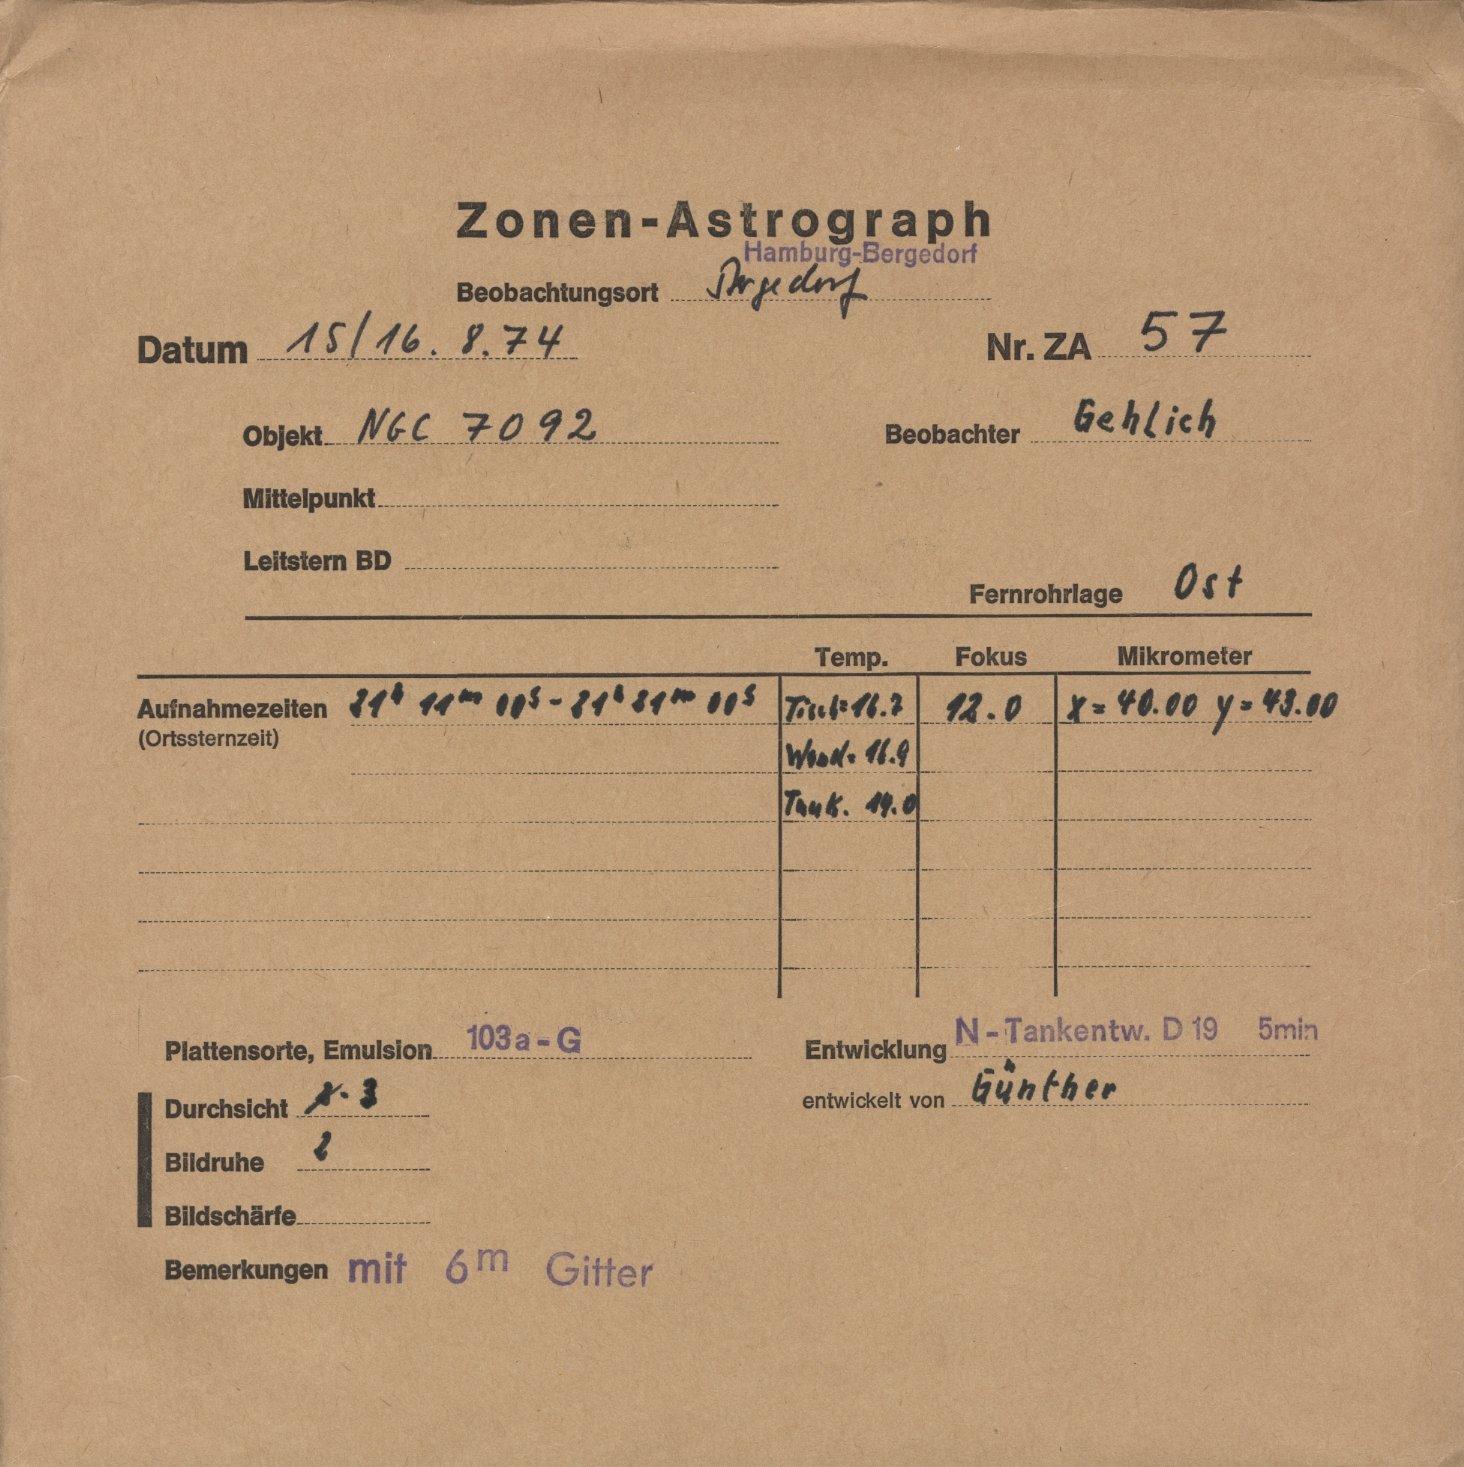 Zonen-Astrograph
Hamburg-Bergedorf
Beobachtungsort Bergedorf
Datum 15/16. 8. 74 Nr. ZA 57
Objekt NGC 7092 Beobachter Gehlich
Mittelpunkt
Leitstern BD
Fernrohrlage Ost
Temp. Fokus Mikrometer
Aufnahmezeiten 21h 11m 00s - 21h 21m 00s 12.0 x = 40.00 y = 43.00
(Ortssternzeit)
16.9
Tank. 19.0
Plattensorte, Emulsion 103a-G Entwicklung N-Tankentw. D 19 5min
Durchsicht 3 entwickelt von Günther
Bildruhe 2
Bildschärfe
Bemerkungen mit 6m Gitter